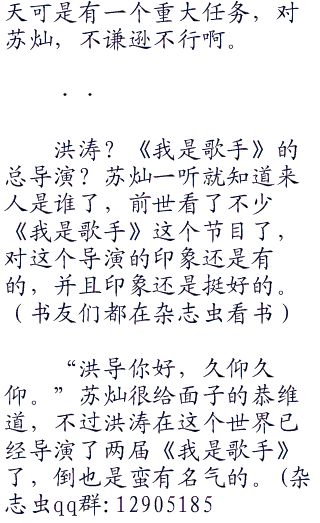 天可是有一个重大任务，对
苏灿，不谦逊不行啊。
．．
洪涛？《我是歌手》的
总导演？苏灿一听就知道来
人是谁了，前世看了不少
《我是歌手》这个节目了，
对这个导演的印象还是有
的，并且印象还是挺好的。
（书友们都在杂志虫看书）
“洪导你好，久仰久
仰。”苏灿很给面子的恭维
道，不过洪涛在这个世界已
经导演了两届《我是歌手》
了，倒也是蛮有名气的。(杂
志虫qq群:12905185